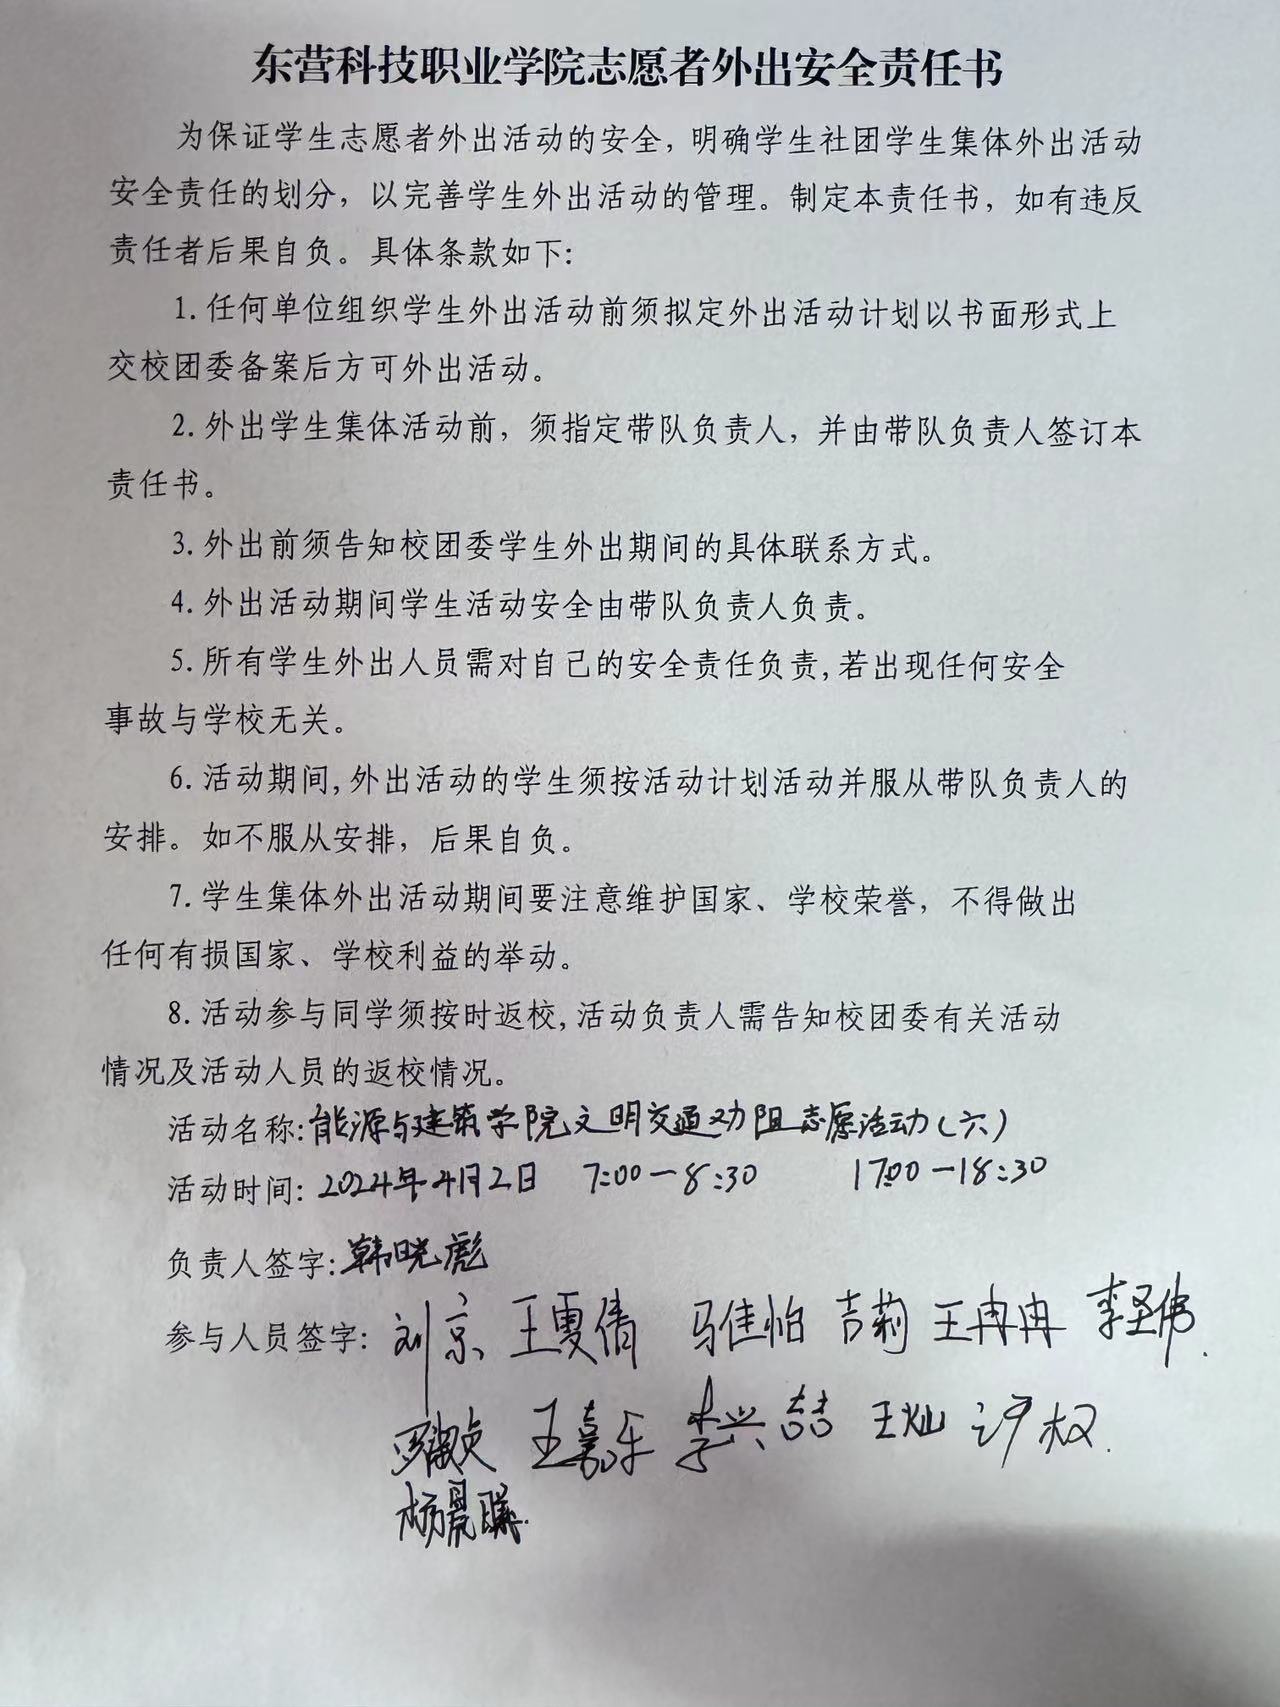 东营科技职业学院志愿者外出安全责任书
为保证学生志愿者外出活动的安全，明确学生社团学生集体外出活动
安全责任的划分，以完善学生外出活动的管理。制定本责任书，如有违反
责任者后果自负。具体条款如下：
1.任何单位组织学生外出活动前须拟定外出活动计划以书面形式上
交校团委备案后方可外出活动。
2.外出学生集体活动前，须指定带队负责人，并由带队负责人签订本
责任书。
3.外出前须告知校团委学生外出期间的具体联系方式。
4.外出活动期间学生活动安全由带队负责人负责。
5.所有学生外出人员需对自己的安全责任负责,若出现任何安全
事故与学校无关。
6.活动期间,外出活动的学生须按活动计划活动并服从带队负责人的
安排。如不服从安排，后果自负。
7.学生集体外出活动期间要注意维护国家、学校荣誉，不得做出
任何有损国家、学校利益的举动。
8.活动参与同学须按时返校,活动负责人需告知校团委有关活动
情况及活动人员的返校情况。
活动名称:能源与建筑学院文明交通劝阻志愿活动(六)
活动时间:2024年4月2日 7:00-8:30 17:00-18:30
负责人签字:韩晓彪
参与人员签字: 刘京 王雯倩 马佳怡 吉莉 王冉冉 李圣伟
罗淑贞 王嘉乐 李兴喆 王灿 许权
杨晨曦